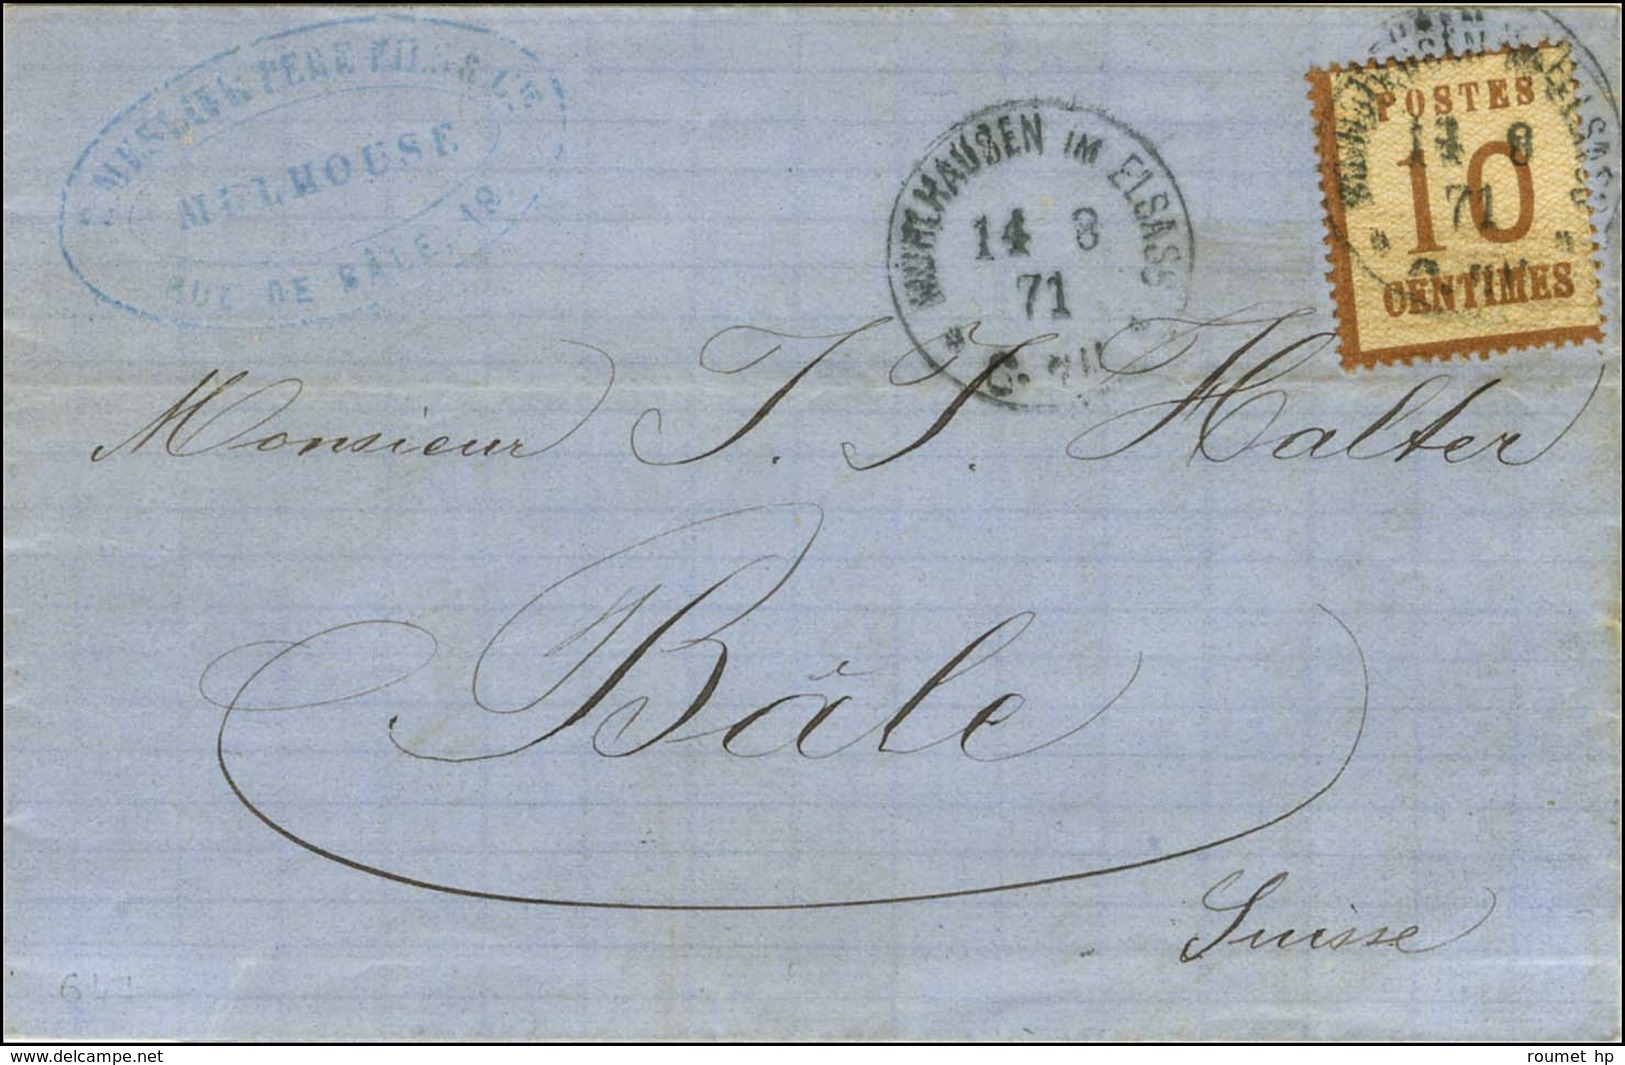 PÈRE FILS & CIE
MULHOUSE
RUE DE BÂLE, 18
MÜHLHAUSEN IM ELSASS
14 8
71
POSTES
10
CENTIMES
14 8
71
Monsieur J. J. Halter
Bâle
Suisse
www.delcampe.net
roumet hp